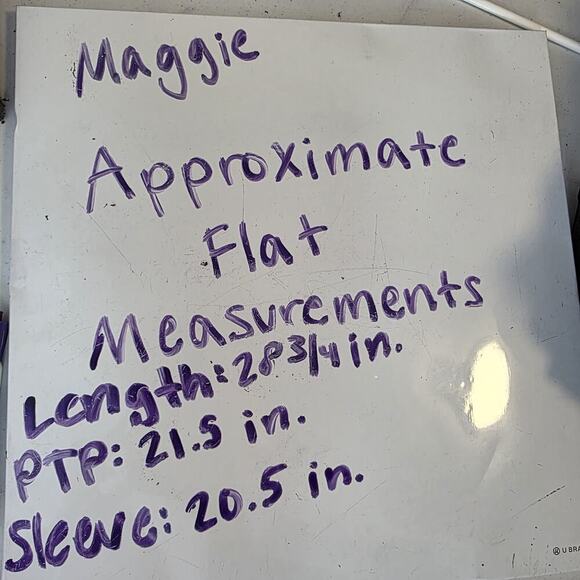 Maggie
Approximate
Flat
Measurements
Length: 28 3/4 in.
PTP: 21.5 in.
Sleeve: 20.5 in.
U BRA